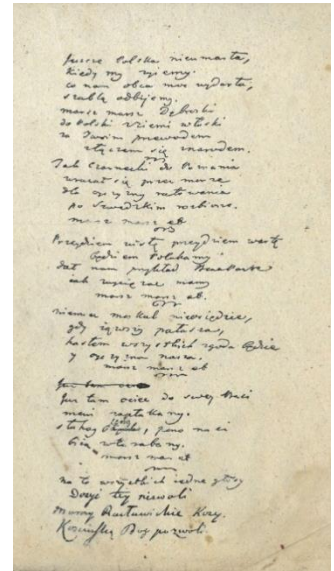 Jeszcze Polska nieumarła,
kiedy my żyiemy.
co nam obca moc wydarła,
szablą odbijemy.
marsz marsz Dąbrski
do Polski z ziemi włoski
za Twoim przewodem
złączem się z narodem.
Jak Czarnecki do Poznania
wracał się przez morze
dla oyczyzny ratowania
po Szwedzkim rozbiorze.
marsz marsz et
Przeydziem Wisłę przeydziem Wartę
będziem Polakamy
dał nam przykład Bonaparte
iak zwyciężać mamy
marsz marsz et.
niemiec moskal nieosiędzie,
gdy iąwszy pałasza,
hasłem wszystkich zgoda będzie
y oyczyzna nasza.
marsz marsz et
Już tam ociec
Już tam ociec do swey Basi
mówi zapłakany.
słuchay, pono nasi
biią w tarabany.
marsz marsz et
na to wszystkich iedne głosy
Dosyć tey niewoli
mamy Racławickie Kosy,
Kosciuszkę Bog pozwoli.